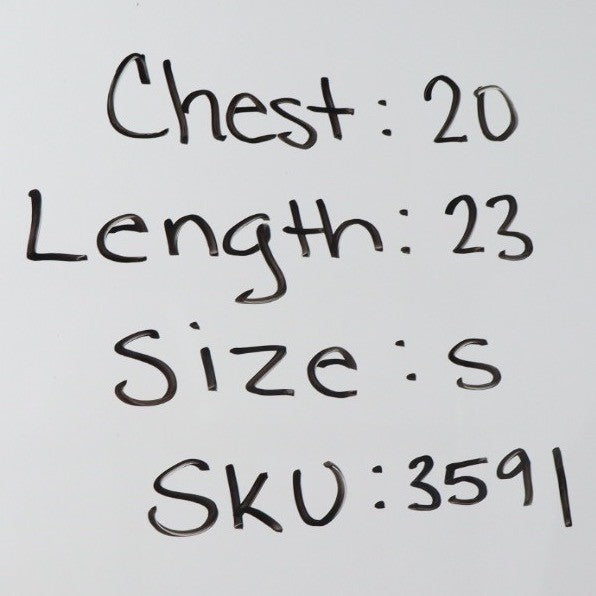 Chest: 20
Length: 23
Size: S
SKU: 3591